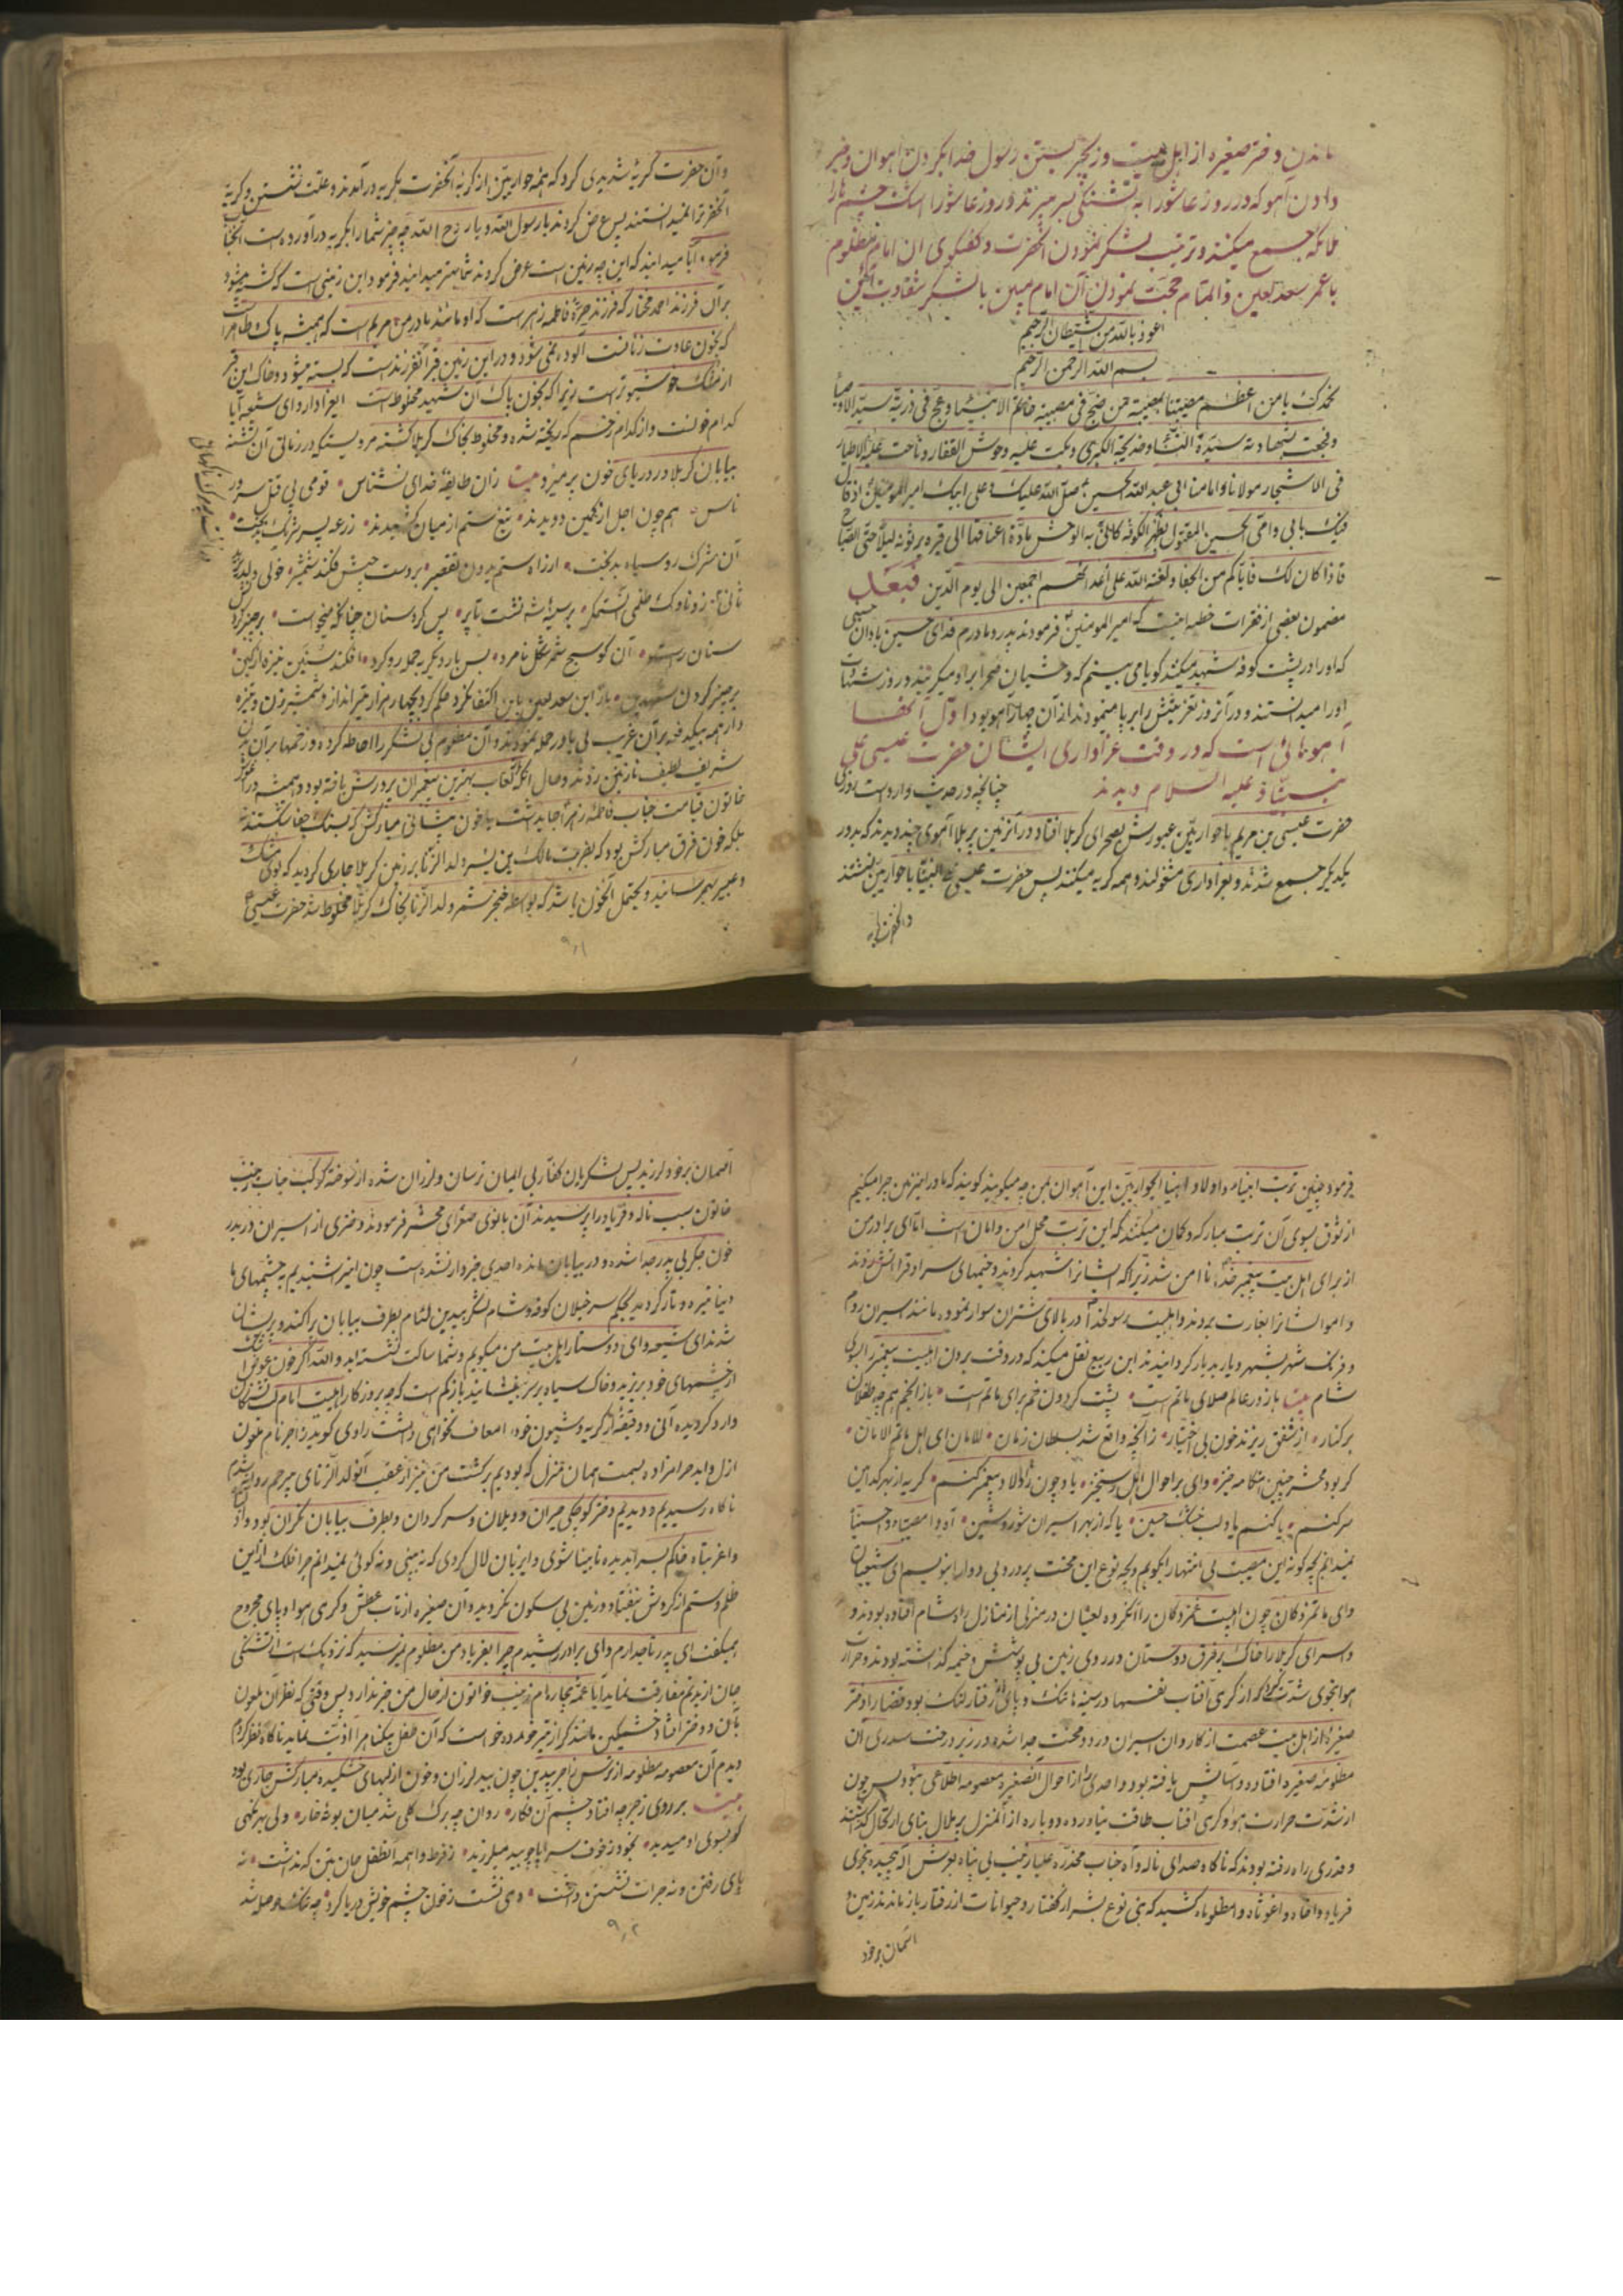 ماندن دختر صغیره از اهل بیت و زنجیر بستن رسول خدا بگردن آهوان و خبر
دادن آهو که در روز عاشورا به تشنگی بسر میبرند و روز عاشورا اشک چشم ها را
ملائکه جمع میکنند و ترتیب لشکر نمودن آنحضرت و گفتگوی ان امام مظلوم
با عمر سعد لعین و اتمام حجت نمودن آن امام مبین با لشکر شقاوت آئین
اعوذ بالله من الشیطان الرجیم
بسم الله الرحمن الرحیم
نحمدک یا من اعظم مصیبتنا بمصیبة من ضج فی مصیبته خاتم الانبیاء و عج فی ذریة سید الاوصیا
و فجعت بشهادته سیدة النساء و خدیجة الکبری و بکت علیه وحوش القفار و ناحت علیه الاطیار
فی الاشجار مولانا و امامنا ابی عبد الله الحسین صلی الله علیک و علی ابیک امیر المؤمنین اذ قال
فیک بابی و امی الحسین المقتول بظهر الکوفه کانی به الوحش مادة اعناقها الی قبره یرثونه لیلا حتی الصباح
فاذا کان ذلک فایاکم من الجفا و لعنة الله علی اعدائهم اجمعین الی یوم الدین فبعد
مضمون بعضی از فقرات خطبه اینست که امیر المومنین فرمودند پدر و مادرم فدای حسین باد آن حسینی
که او را در پشت کوفه شهید میکنند گویا می بینم که وحشیان صحرا بر او میگریند و روز شهادت
او را میدانستند و در آنروز تعزیتش را بر پا مینمودند از آن چهار آهو بود اول آنها
آهوهائی است که در وقت عزاداری ایشان حضرت عیسی علی
نبینا و علیه السلام دیدند چنانچه در حدیث وارد است روزی
حضرت عیسی بن مریم با حواریین عبورش بصحرای کربلا افتاد در آنزمین پر بلا آهوی چند دیدند که بدور
یکدیگر جمع شدند و بعزاداری مشغولند و همه گریه میکنند پس حضرت عیسی علی نبینا با حواریین نشستند
وانحضرت گریه
وآن حضرت گریه شدیدی کرد که همه حواریین از گریه آنحضرت بگریه درآمدند و علت نشستن و گریه
آنحضرت را نمیدانستند پس عرض کردند یا رسول الله و یا روح الله چه چیز شما را بگریه در آورده است آنجناب
فرمود آیا میدانید که این چه زمین است عرض کردند شما بهتر میدانید فرمود این زمینی است که کشته میشود
بر آن فرزند احمد مختار که فرزند خیره فاطمه زهراست که او مانند مادر من مریم است که همیشه پاک طاهر است
که بخون عادت زنانست آلوده نمی شود و در این زمین قبر آنفرزند است که بسته میشود و خاک این قبر
از مشک خوشبوتر است زیرا که بخون پاک آن شهید مخلوط است ایعزادار و ای شیعه آیا
کدام خونست و از کدام زخم که ریخته شده و مخلوط بخاک کربلا گشته مرویستکه در زمانی آن تشنه
بیابان کربلا در دریای خون پر میزد بیت زان طایفه خدای نشناس قومی پی قتل سرور
ناس هم چون اجل از کمین دویدند تیغ ستم از میان کشیدند زرعه پسر شریک بدبخت
آن مشرک رو سیاه بدبخت از راه ستم بدون تقصیر بر دست چپش فکند شمشیر خولی ولد زنای
سنان رسته آن کوسج شمر شکل نامرد پس بار دیگر به حمله رو کرد افکند سنین نیزه از کین
بر چیز کردن شهیدین باز ابن سعد لعین باین اکتفا نکرد حکم کرد چهار هزار تیر انداز و شمشیر زن و نیزه
دار همه بیکدفعه بر آن غریب بی یاور حمله نمودند و آن مظلوم بی لشکر را احاطه کرده و زخمها بر آن بدن
شریف لطیف نازنین زدند و حال آنکه بلعاب بهترین پیغمبران پرورش یافته بود و همیشه در آغوش
خاتون قیامت جناب فاطمه زهرا جا داشت یا خون پیشانی مبارکش که بسنگ جفا شکستند
بلکه خون فرق مبارکش بود که بضربت مالک بن یسر ولد الزنا بر زمین کربلا جاری گردید که بوی مشک
و عبیر بهم رسانید و یحتمل آنخون باشد که بواسطه خنجر شمر ولد الزنا بخاک کربلا مخلوط شد حضرت عیسی
۹۰۱
فرمود چنین تربت انبیاء و اولاد انبیا ایحواریین این آهوان بمن چه میگویند گویند که ما در اینزمین چرا میکنیم
از شوق بسوی آن تربت مبارکه و گمان میکنند که این تربت محل امن و امان است اما ای برادر من
از برای اهل بیت پیغمبر خدا نا امن شد زیرا که ایشانرا شهید کردند و خیمهای سراوقرانش زدند
و اموال ایشانرا بغارت بردند و اهلبیت رسولخدا را در بالای شتران سوار نموده مانند اسیران روم
و فرنگ شهر بشهر و دیار بدیار گردانیدند ابن ربیع نقل میکند که در وقت بردن اهلبیت پیغمبر را بسوی
شام بیت باز در عالم صلای ماتم است پشت گردون خم برای ماتم است باز انجم هم چه طفلان
برکنار از شفق ریزند خون بی اختیار زآنچه واقع شد بسلطان زمان الامان ای اهل ماتم الامان
گر بود محشر چنین هنگامه خیز وای بر احوال اهل رستخیز یا چون ز اولاد پیغمبر کنم گریه از بهر کدامین
سر کنم یا کنم یاد لب خشک حسین یا که از بهر اسیران شور و شین آه وا مصیبتاه وا حسینا
نمیدانم بچه گونه این مصیبت بی انتها را بگویم و بچه نوع این محنت پر درد بی دوا را بنویسم ای شیعیان
وای ماتمزدگان چون اهلبیت غمزدگان را آنگروه لعینان در منزلی از منازل راه شام افتاده بودند و
و اسرای کربلا را خاک بر فرق دوستان در روی زمین بی پوشش و خیمه گذاشته بودند و حرارت
هوا بنحوی شدت کرد که از گرمی آفتاب نفسها در سینه ها تنگ و پای از رفتار لنگ بود قضا را دختر
صغیره از اهل بیت عصمت از کاروان اسیران درد و محنت جدا شده در زیر درخت سدری آن
مظلومه صغیره افتاده و تنهائش یافته بود و احدی را از احوال آنصغیره معصومه اطلاعی نبود پس چون
از شدت حرارت هوا و گرمی افتاب طاقت نیاورده دوباره از آنمنزل پر ملال بنای ارتحال گذاشتند
و قدری راه رفته بودند که ناگاه صدای ناله و آه جناب مخدره علیا زینب بی پناه بعرش اله پیچیده بنحوی
فریاد وا غوثاه وا مظلوماه کشید که بنی نوع بشر از گفتار و حیوانات از رفتار باز ماندند زمین و
آسمان بر خود
آسمان بر خود لرزید پس لشکریان کفار بی ایمان ترسان و لرزان شده از سوخته کوکب جناب زینب
خاتون سبب ناله و فریاد را پرسیدند آن بانوی صحرای محشر فرمودند دختری از اسیران در بدر
خون جگر بی پدر جدا شده و در بیابان مانده احدی خبردار نشده است چون اینرا شنیدیم به چشمهای ما
دنیا تیره و تار گردید بحکم سرخیلان کوفه و شام لشکر بیدین لئام بطرف بیابان پراکنده و پریشان
شدند ای شیعه و ای دوستار اهل بیت من میگویم و شما ساکت نشسته اید و الله اگر خون عوض اشک
از چشمهای خود بریزید و خاک سیاه بر سر بفشانید باز کم است که چه بروزگار اهلبیت امام تشنگان
وارد گردیده آنی و دقیقه از گریه و شیون خود را معاف نخواهی داشت راوی گوید زاجر نام ملعون
ازل و ابد حرامزاده بسمت همان منزل که بودیم برگشت من نیز از عقب آنولد الزنای بیرحم روانه شدم
ناگاه رسیدیم و دیدیم دختر کوچکی حیران و ویلان و سرگردان و بطرف بیابان نگران بود وا
وا غربتاه خاکم بسر ایدیده نابینا شوی و ایزبان لال گردی که نه بینی و نه گوئی نمیدانم چرا فلک از این
ظلم و ستم از گردش نیفتاد و زمین بی سکون نگردید و آن صغیره از تاب عطش و گرمی هوا و پای مجروح
همیگفت ای پدر تاجدارم وای برادر رشیدم چرا بفریاد من مظلوم نمیرسید که نزدیک است از تشنگی
جان از بدنم مفارقت نماید آیا عمه بیچاره ام زینب خواتون از حال من خبر ندارد پس وقتی که نظر آن ملعون
بآن دختر افتاد خشمگین مانند گراز تیر خورده خواست که آن طفل بیگناه را اذیت نماید ناگاه نظر کردم
دیدم آن معصومه مظلومه از ترس زاجر بیدین چون بید لرزان و خون از لبهای خشکیده مبارکش جاری بود
بیت بر روی زجر چه افتاد چشم آن فگار روان چه برگ گلی شد میان بوتهٔ خار ولی بهر نگهی
کو بسوی او میدید بخود ز خوف سراپا چو بید میلرزید ز فرط واهمه آنطفل جان بتن که نداشت نه
پای رفتن و نه جرات نشستن داشت دمی نشست ز خون چشم خویش دریا کرد چه تنگ حوصله شد
۹۰۲